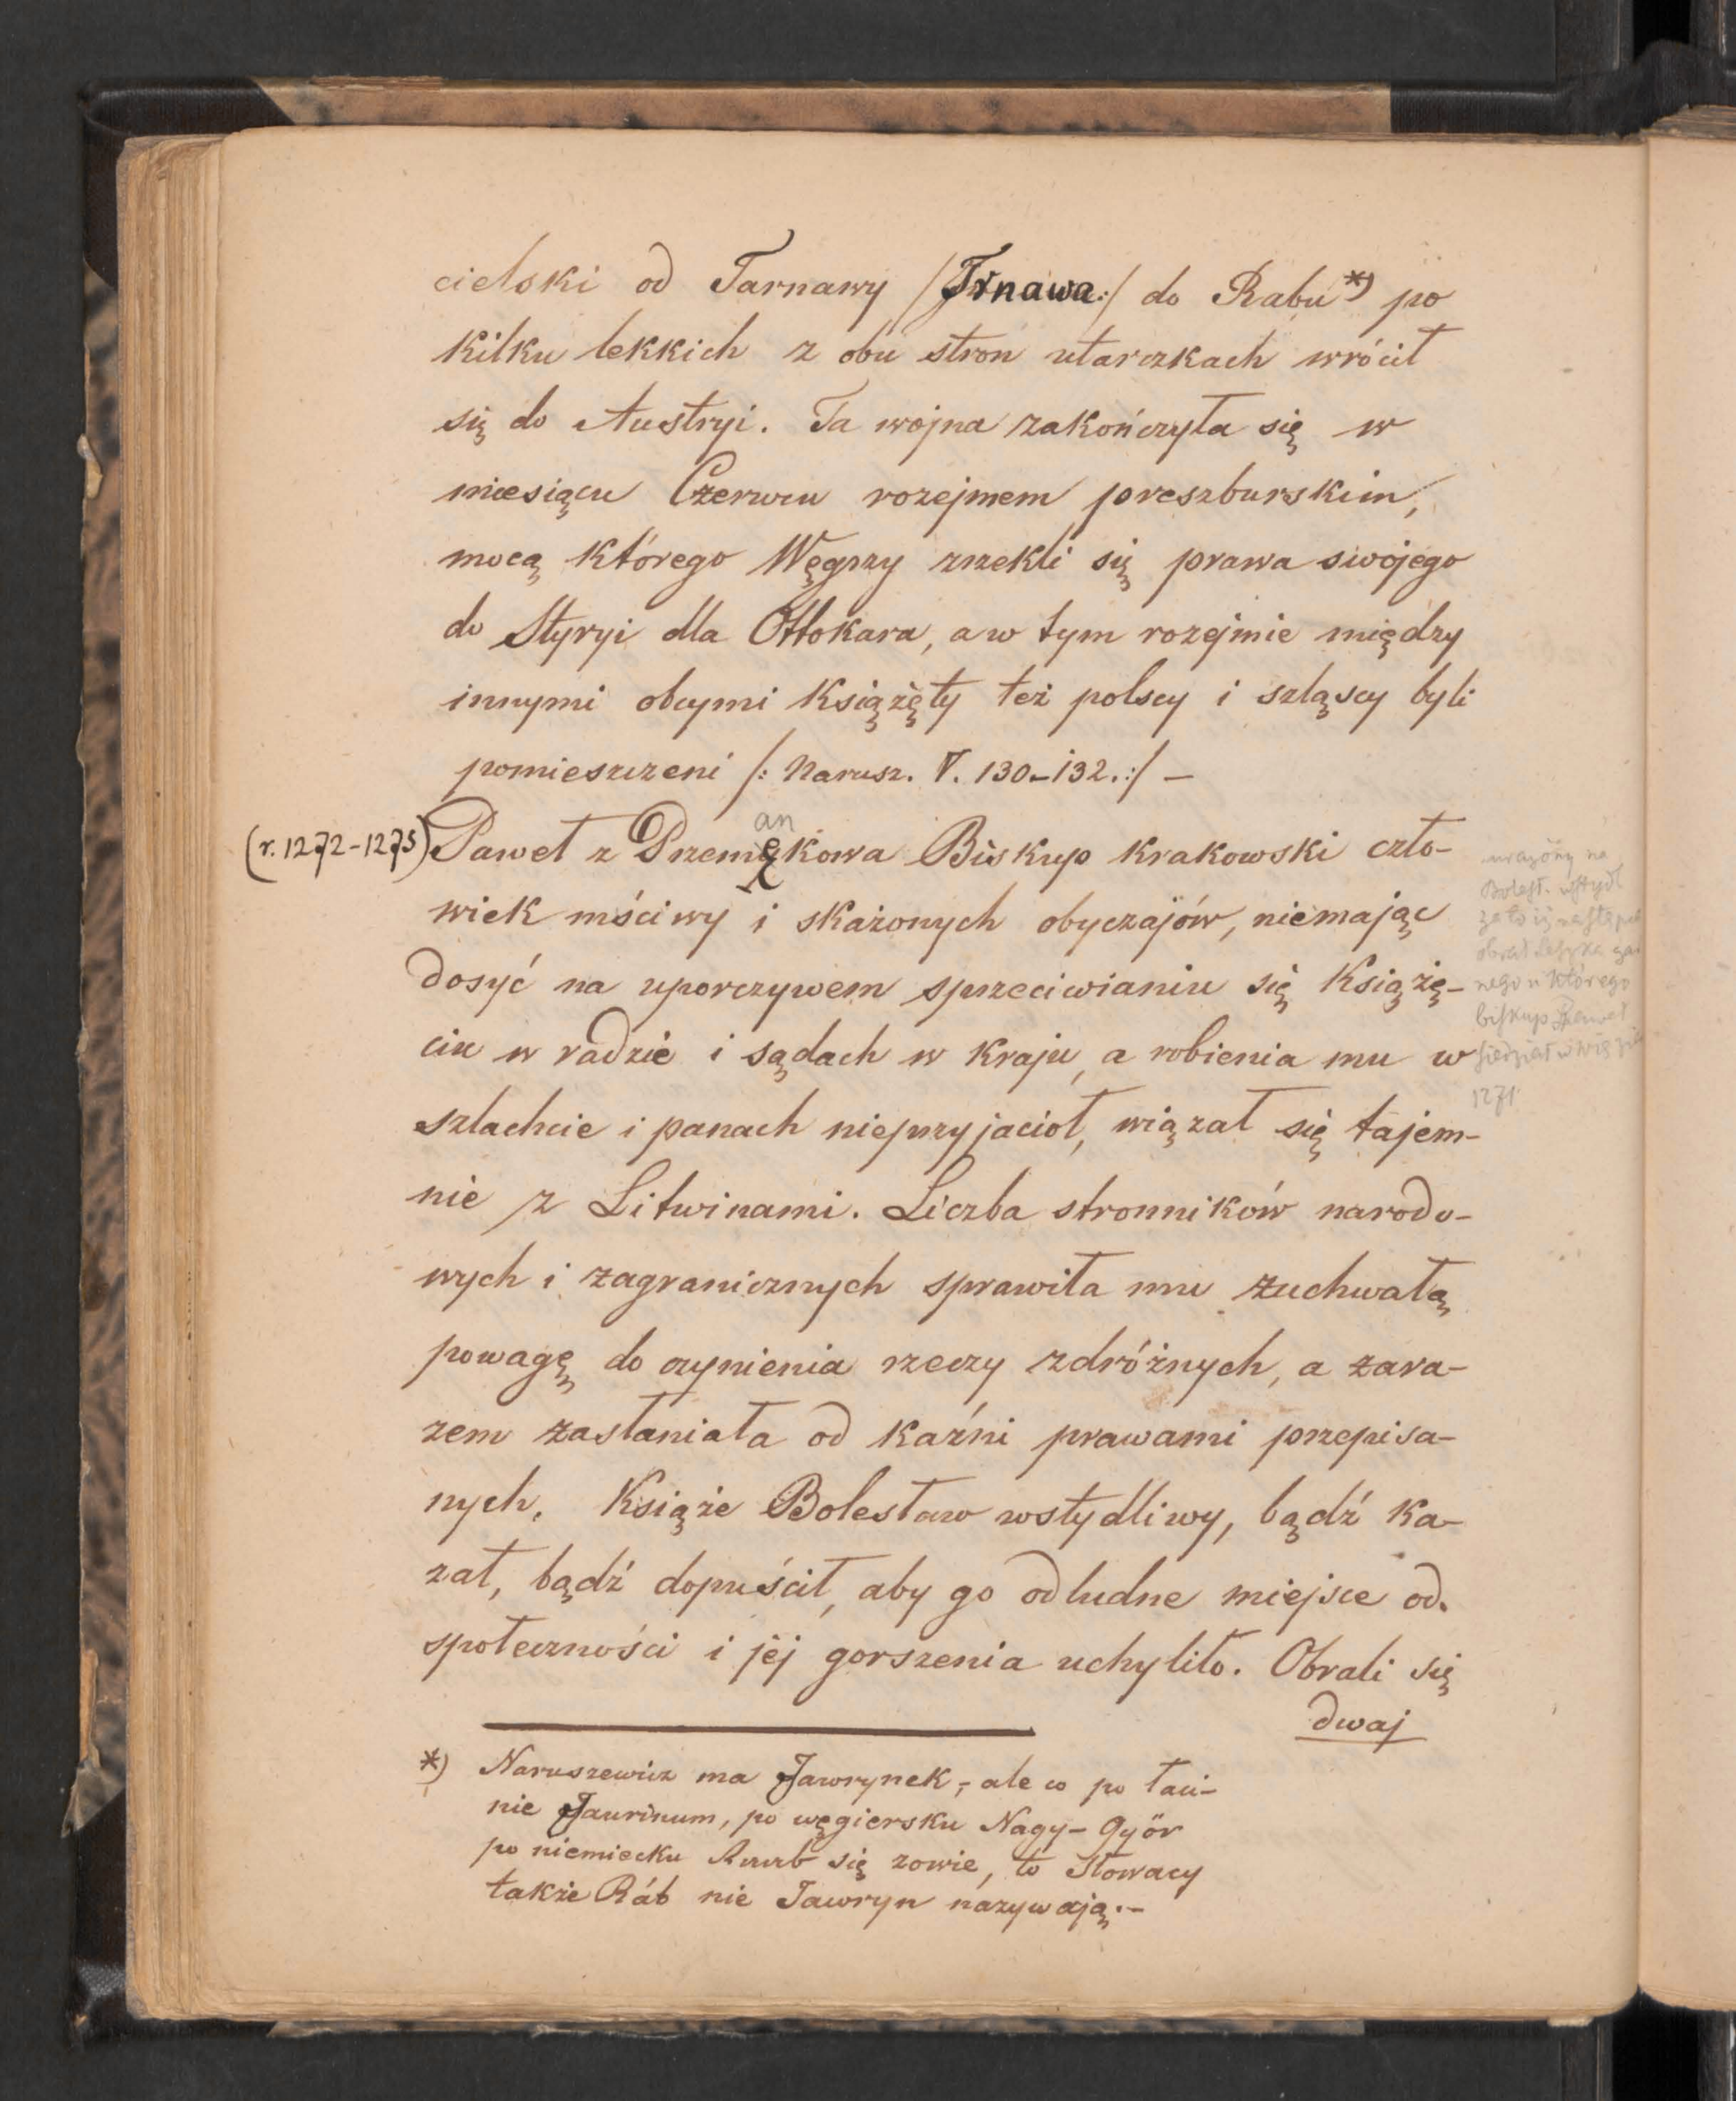 cielski od Tarnawy /Trnawa:/ do Rabu *) po
kilku lekkich z obu stron utarczkach wrócił
się do Austryi. Ta wojna zakończyła się w
miesiącu Czerwcu rozejmem preszburskim,
mocą którego Węgrzy zrzekli się prawa swojego
do Styryi dla Ottokara, a w tym rozejmie między
innymi obcymi książęty też polscy i szląscy byli
pomieszczeni /: Narusz. V. 130-132.:/ —
(r. 1272-1275) Paweł z Przemękowa Biskup krakowski czło-
an
wiek mściwy i skażonych obyczajów, niemając
dosyć na uporczywem sprzeciwianiu się Książę-
ciu w radzie i sądach w kraju, a robienia mu w
szlachcie i panach nieprzyjacioł, wiązał się tajem-
nie z Litwinami. Liczba stronników narodo-
wych i zagranicznych sprawiła mu zuchwałą
powagę do czynienia rzeczy zdróżnych, a zara-
zem zasłaniała od kaźni prawami przepisa-
nych. Książe Bolesław wstydliwy, bądź ka-
zał, bądź dopuścił, aby go odludne miejsce od
społeczności i jej gorszenia uchyliło. Obrali się
dwaj
urażony na
Bolesł. wstydl
za to iż następcą
obrał Leszka czar
nego u którego
biskup Paweł
siedział w
1271
*) Naruszewicz ma Jawrynek, ale co po łaci-
nie Jaurinum, po węgiersku Nagy-Györ
po niemiecku Raab się zowie, to Słowacy
także Ráb nie Jawryn nazywają.—